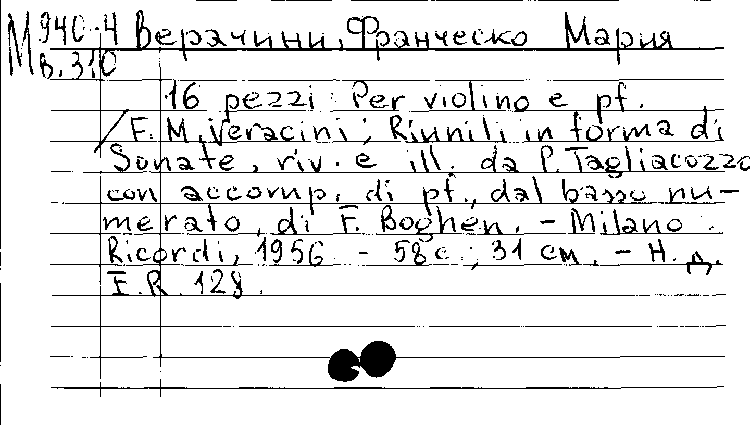 М 940-4 Верачини, Франческо Мария
В.310
16 pezzi : Per violino e pf.
/ F. M. Veracini ; Riuniti in forma di
Sonate, riv. e ill. da P. Tagliacozzo
con accomp. di pf., dal basso nu-
merato, di F. Boghen. - Milano :
Ricordi, 1956. - 58 с. ; 31 см. - Н. д.
E.R. 128.